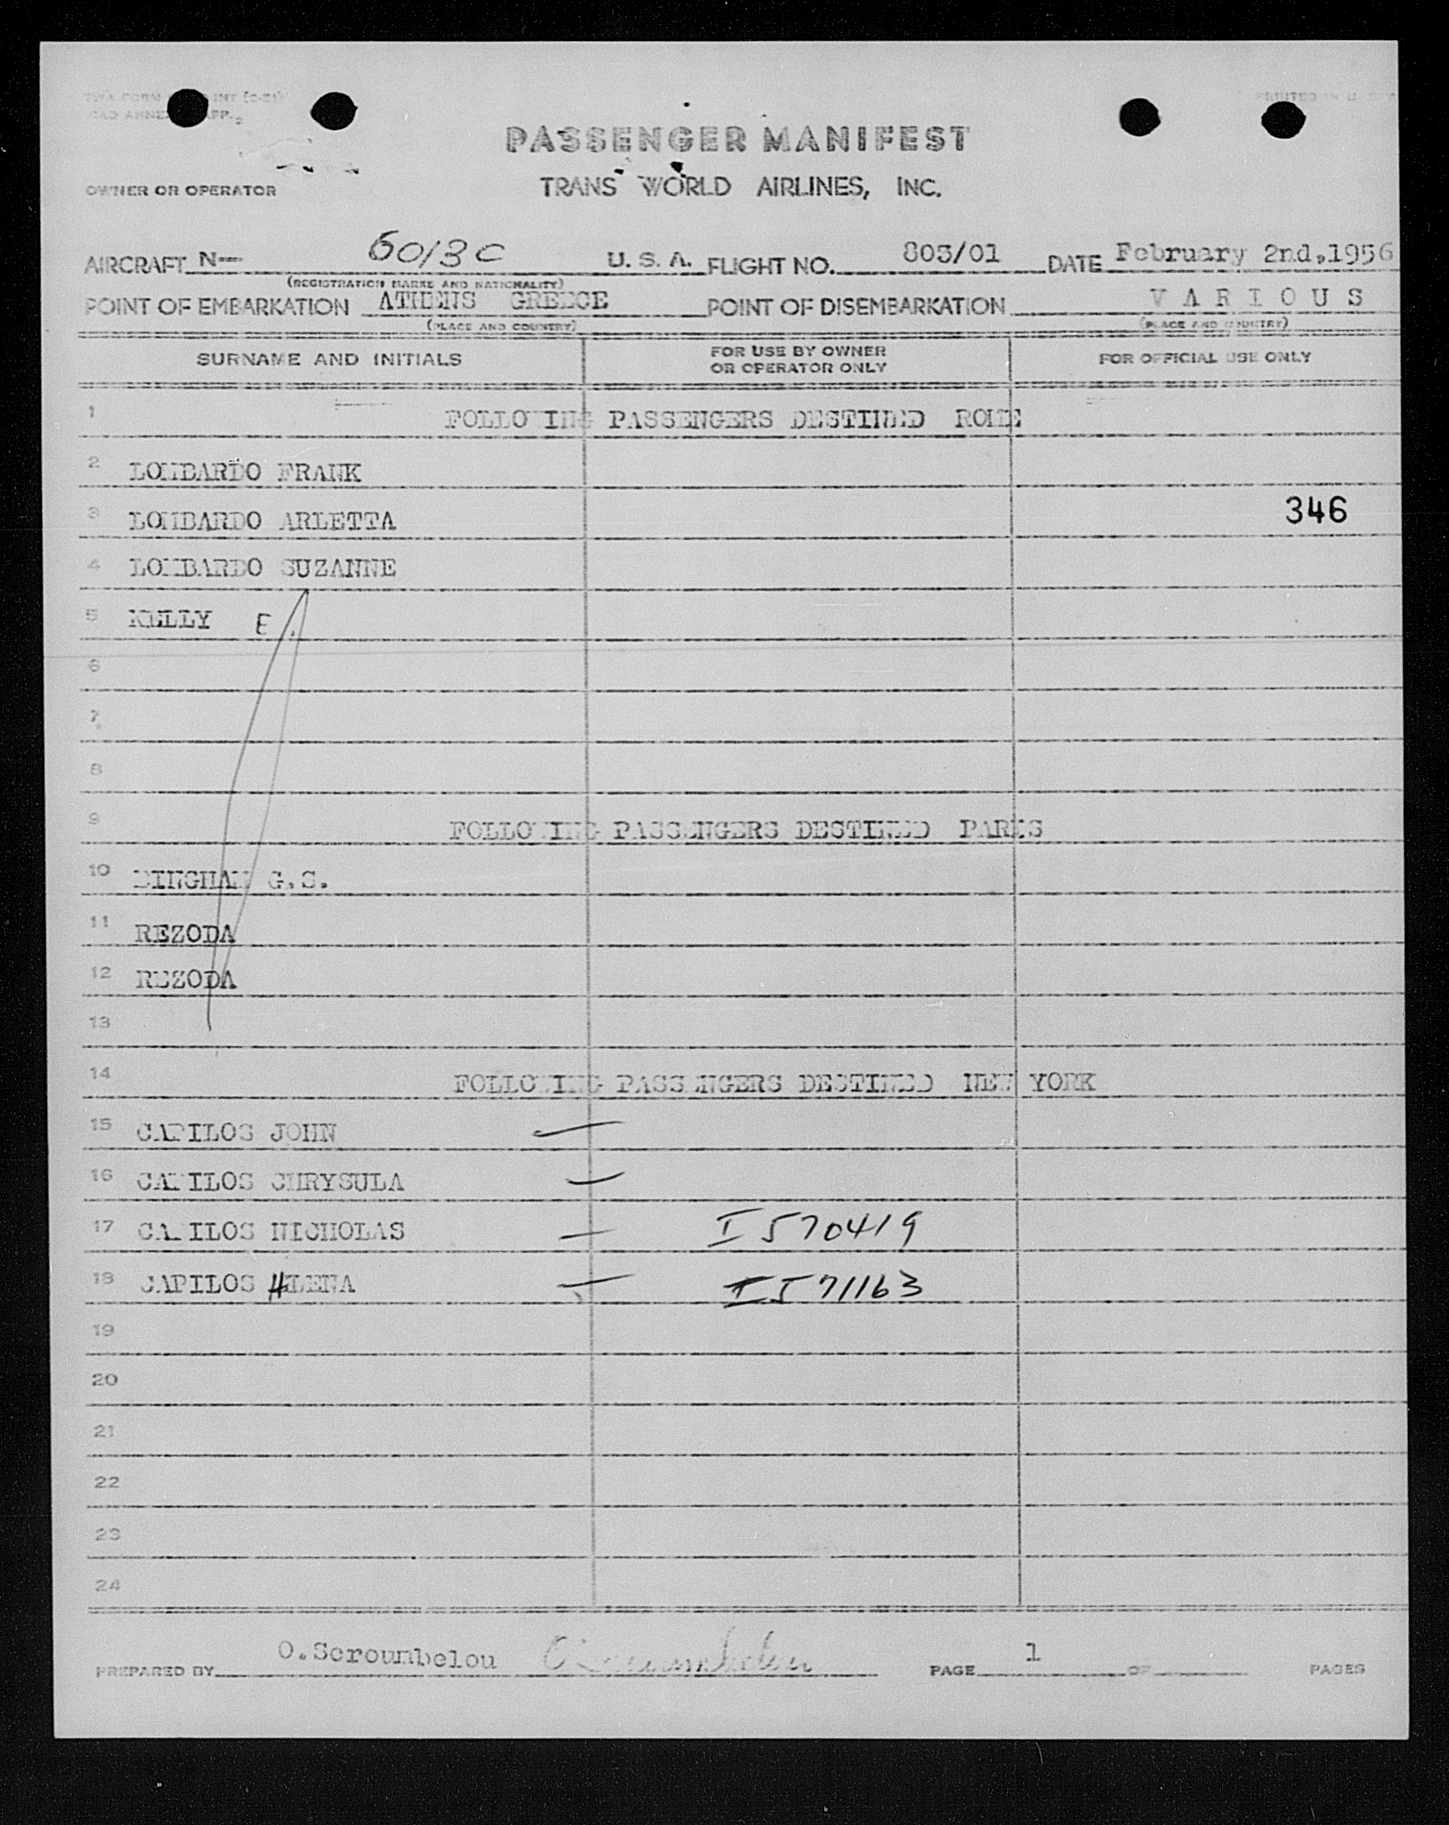 PASSENGER MANIFEST
OWNER OR OPERATOR TRANS WORLD AIRLINES, INC.
AIRCRAFT N-- 6013C U. S. A. FLIGHT NO. 803/01 DATE February 2nd,1956
(REGISTRATION MARKS AND NATIONALITY)
POINT OF EMBARKATION ATHENS GREECE POINT OF DISEMBARKATION V A R I O U S
(PLACE AND COUNTRY) (PLACE AND COUNTRY)
SURNAME AND INITIALS FOR USE BY OWNER OR OPERATOR ONLY FOR OFFICIAL USE ONLY
1 FOLLOWING PASSENGERS DESTINED ROME
2 LOMBARDO FRANK
3 LOMBARDO ARLETTA 346
4 LOMBARDO SUZANNE
5 KELLY E.
6
7
8
9 FOLLOWING PASSENGERS DESTINED PARIS
10 BINGHAM G.S.
11 REZODA
12 REZODA
13
14 FOLLOWING PASSENGERS DESTINED NEW YORK
15 CAPILOS JOHN
16 CAPILOS CHRYSULA
17 CAPILOS NICHOLAS I 570419
18 CAPILOS HLENA I 571163
19
20
21
22
23
24
PREPARED BY O.Scroumbelou PAGE 1 OF PAGES